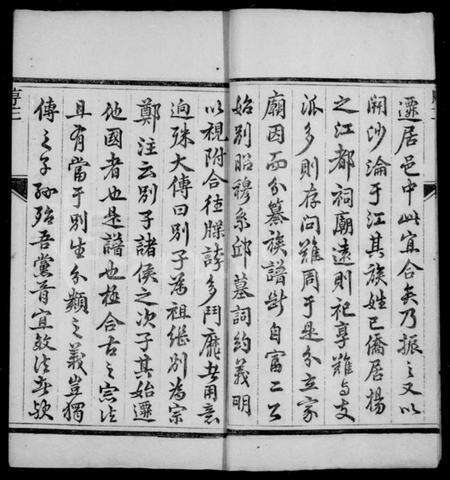 遷居邑中此宜合矣乃振之又以
開沙淪于江其族姓已僑居揚
之江都祠廟遠則祀享難与支
派多則存问難周于是分立家
廟因而分纂族譜斷自富二公
始別昭穆系邱墓詞約義明
以視附合往牒誇多鬥靡者用意
逈殊大傳曰別子為祖继別為宗
鄭注云別子諸侯之次子其始遷
他國者也是譜也極合古之宗法
且有當于別生分類之義豈獨
傳之子孫殆吾黨胥宜效法者歟